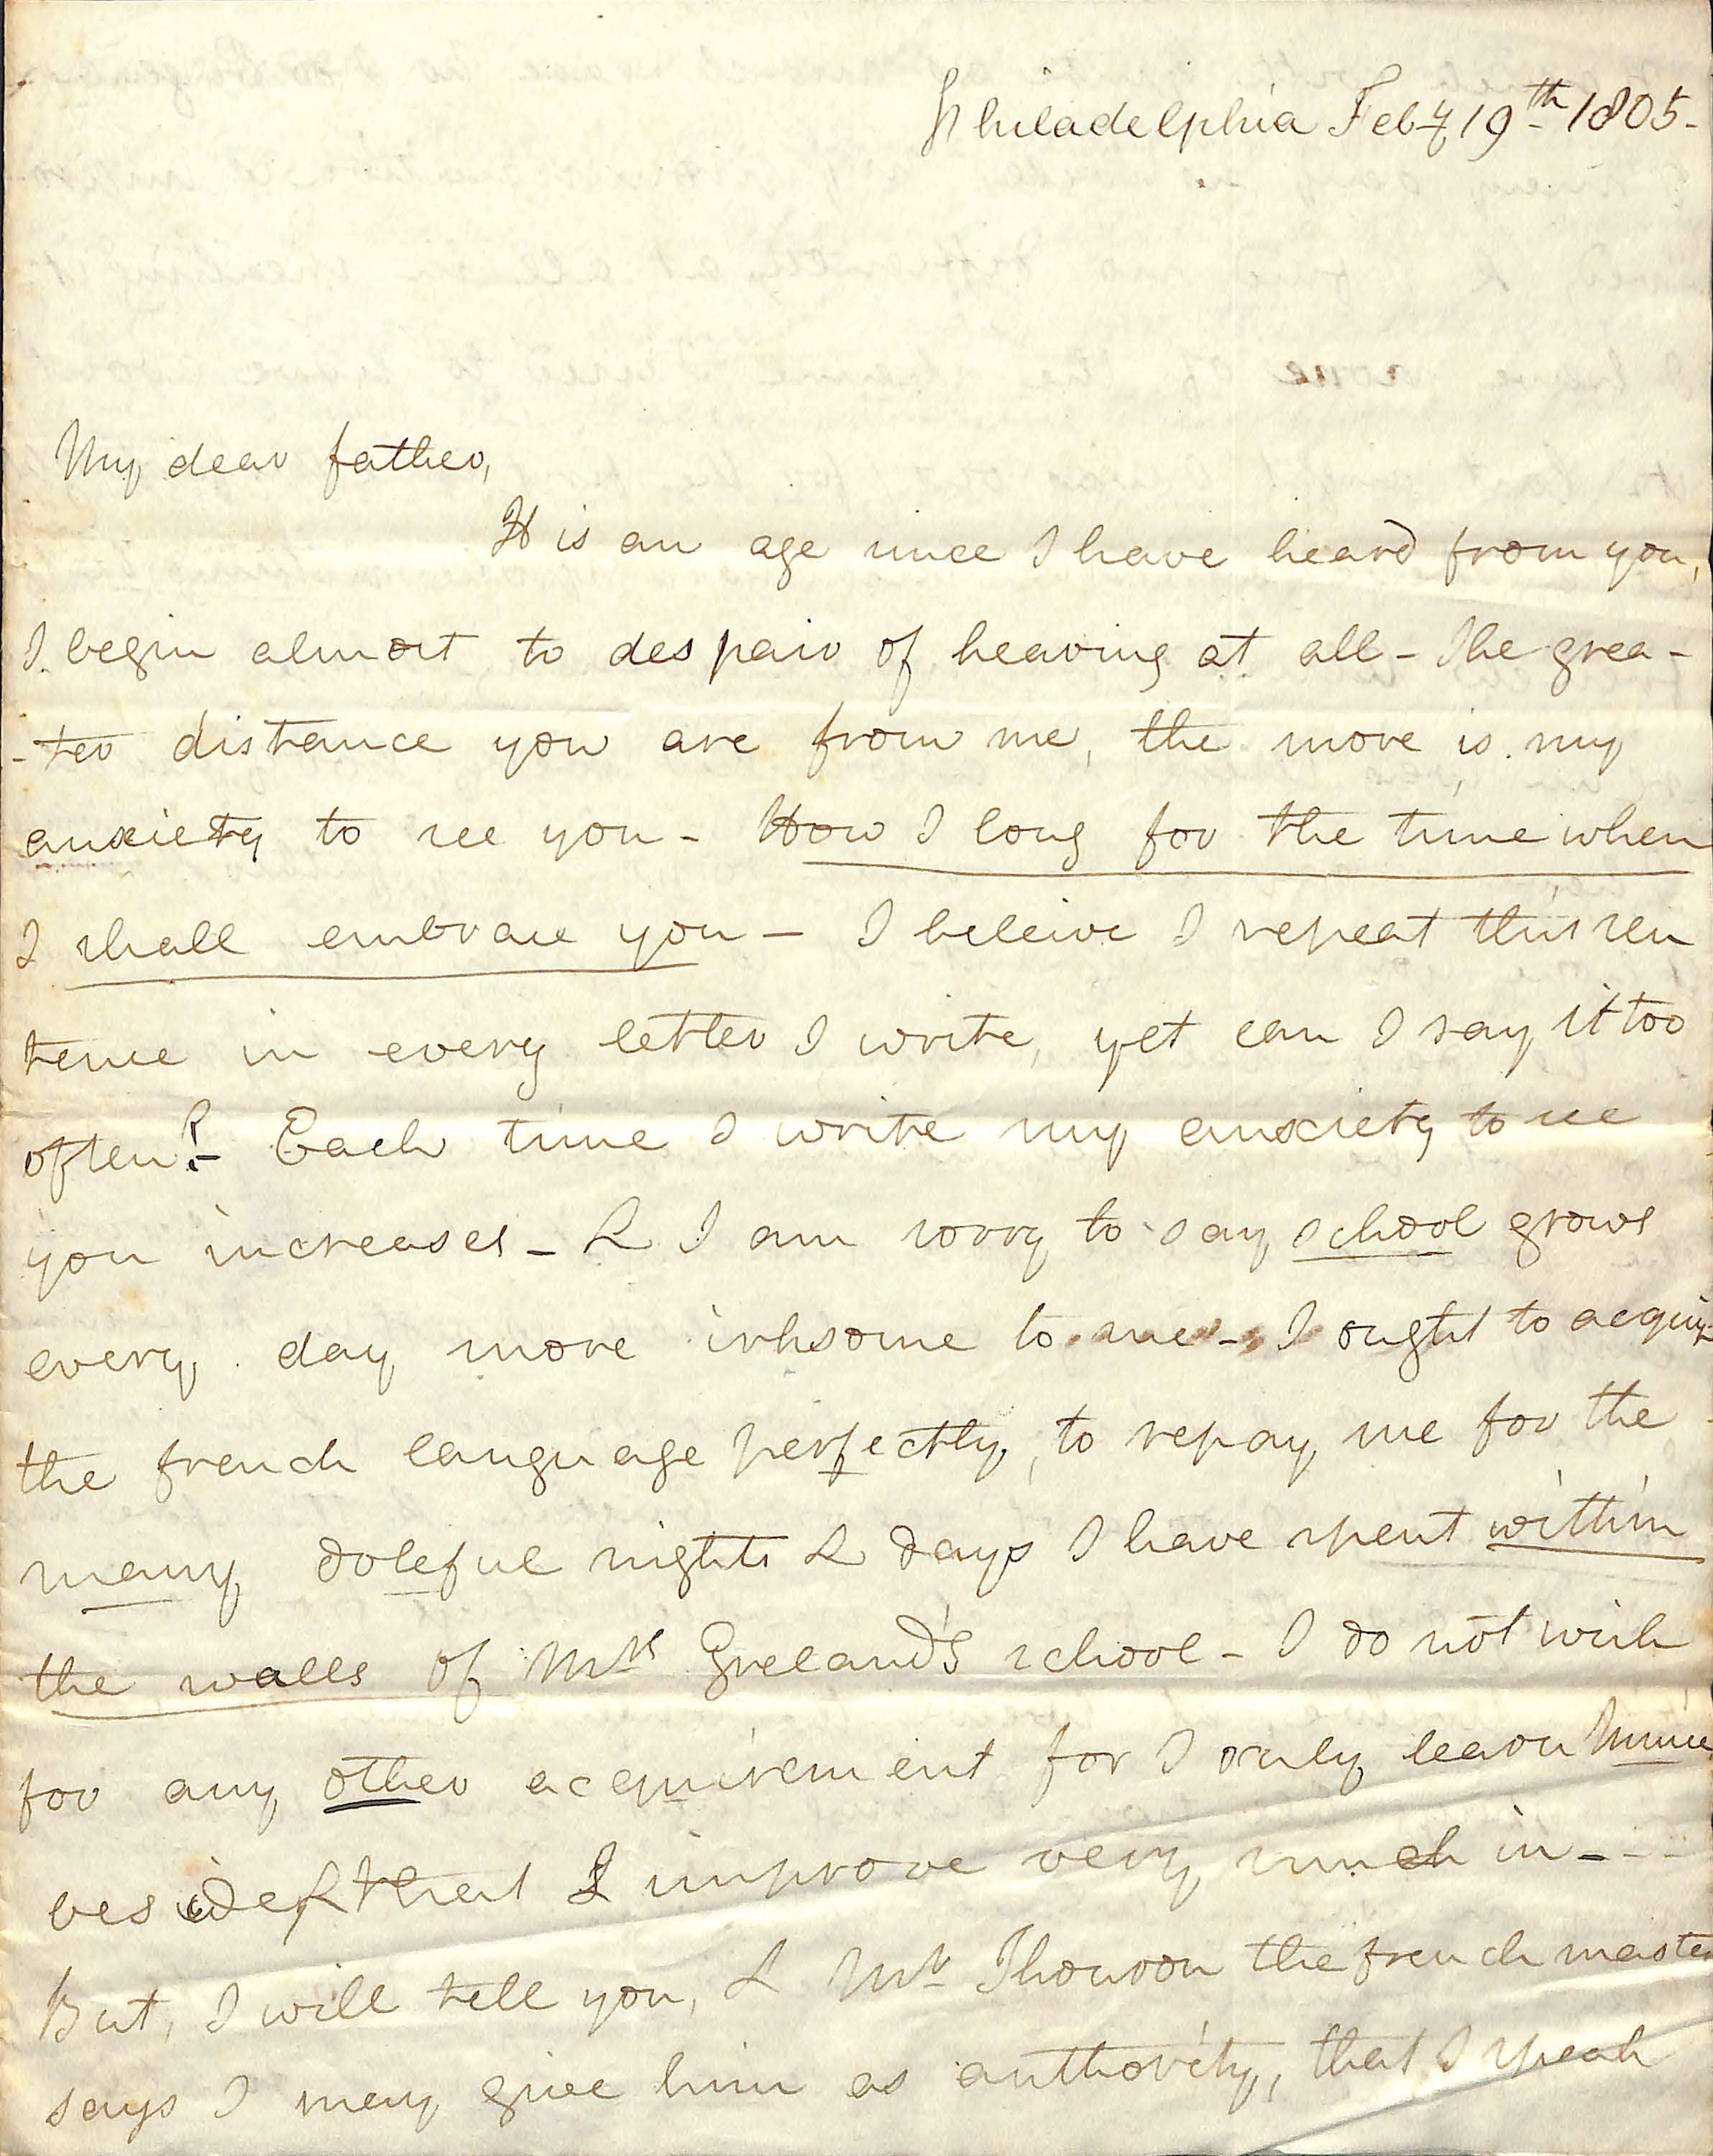 Philadelphia Feby 19th 1805-
My dear father,
It is an age since I have heard from you,
I begin almost to despair of hearing at all - The grea-
-ter distance you are from me, the more is my
anxiety to see you - How I long for the time when
I shall embrace you - I beleive I repeat this sen
tence in every letter I write, yet can I say it too
often?- Each time I write my anxiety to see
you increases - & I am sorry to say school grows
every day more irksome to me - I ought to acquire
the french language perfectly, to repay me for the
many doleful nights & days I have spent within
the walls of Mrs Greland's school - I do not wish
for any other acquirement for I only learn Music
besides & that I improve very much in - - -
But, I will tell you, & Mr Thouron the french master
says I may give him as authority, that I speak